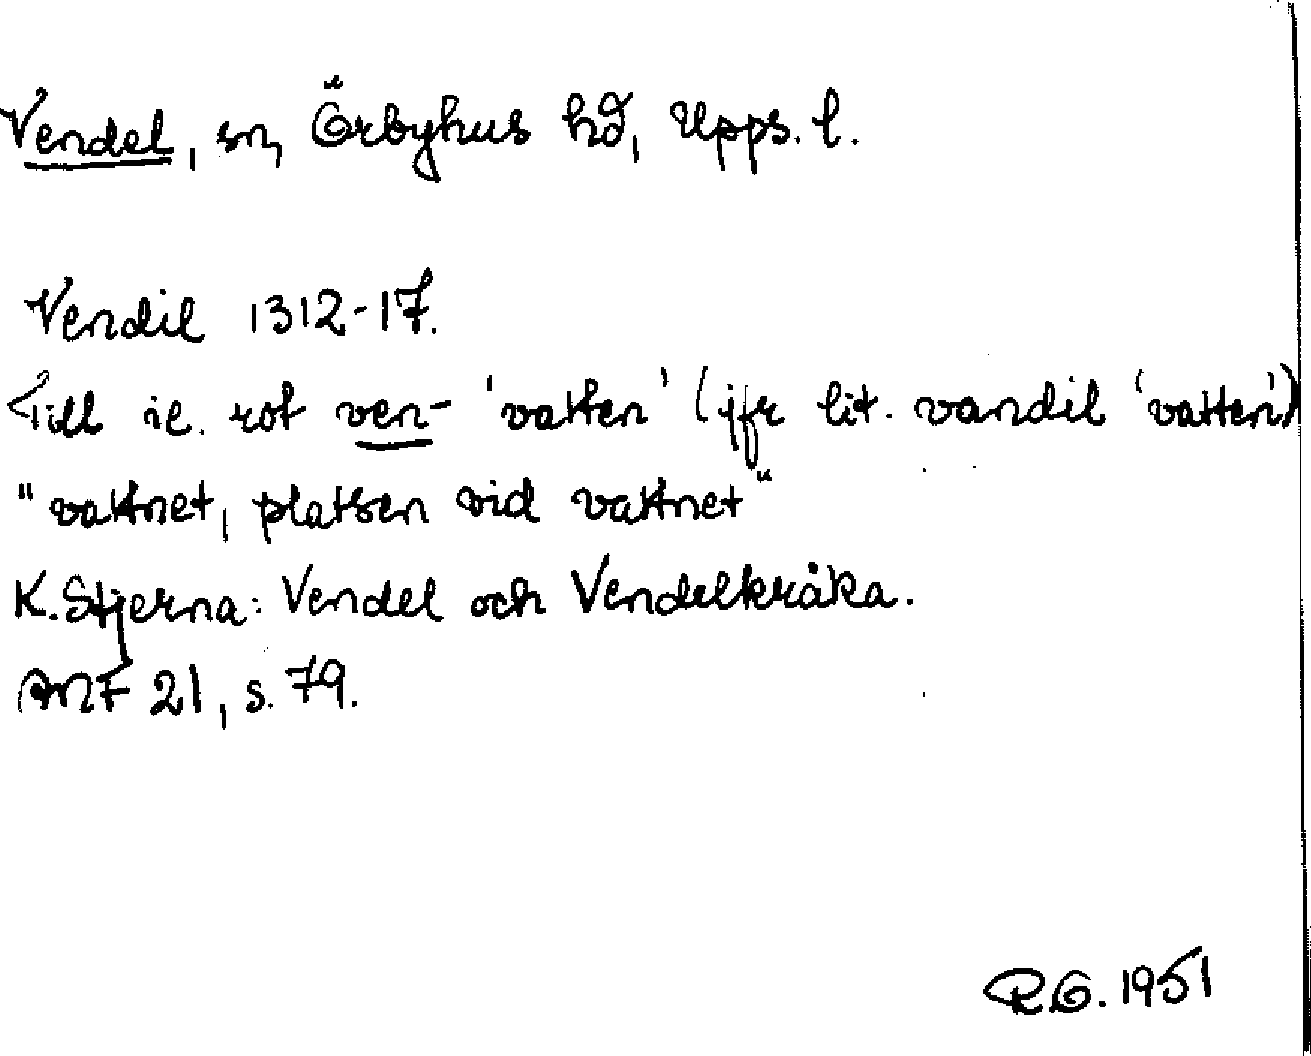 Vendel, sn, Örbyhus hd, Upps. l.
Vendil 1312-17.
Till ie. rot ven- 'vatten' (jfr lit. vandil 'vatten')
"vattnet, platsen vid vattnet"
K. Stjerna: Vendel och Vendelkråka.
ANF 21, s. 79.
R.G. 1951